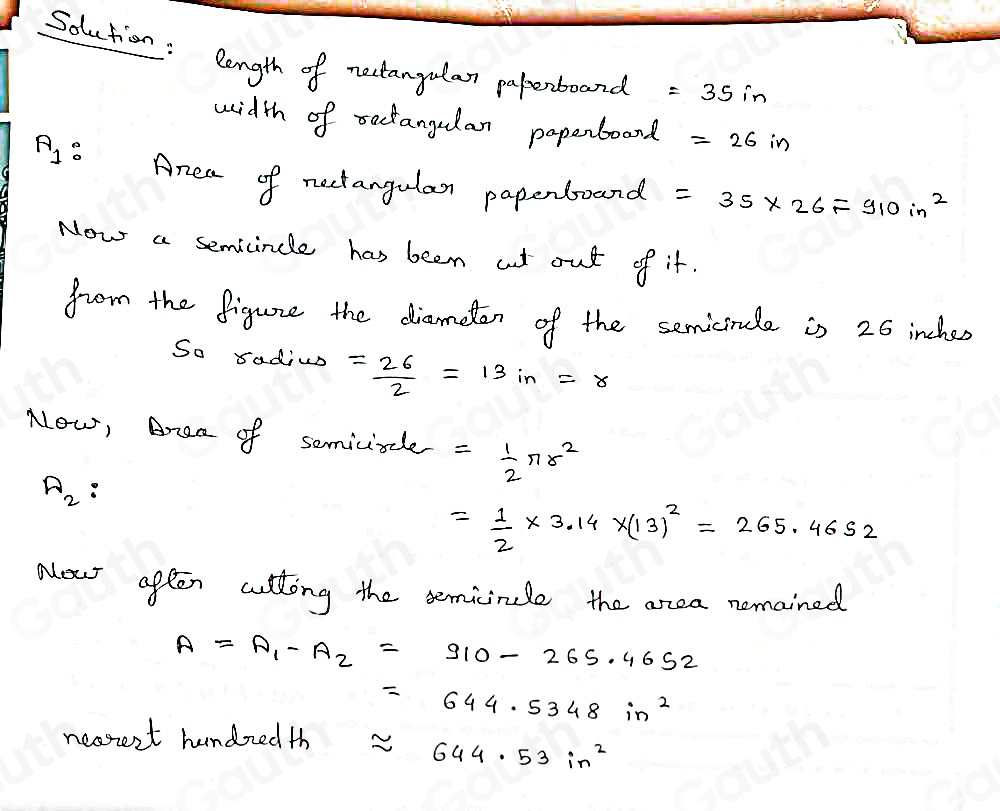 Solution:
length of rectangular paperboard = 35 in
width of rectangular paperboard = 26 in
A₁:
Area of rectangular paperboard = 35 × 26 = 910 in²
Now a semicircle has been cut out of it.
from the figure the diameter of the semicircle is 26 inches
So radius = 26/2 = 13 in = r
Now, Area of semicircle = 1/2 πr²
A₂:
= 1/2 × 3.14 × (13)² = 265.4652
Now after cutting the semicircle the area remained
A = A₁ - A₂ = 910 - 265.4652
= 644.5348 in²
nearest hundredth ≈ 644.53 in²